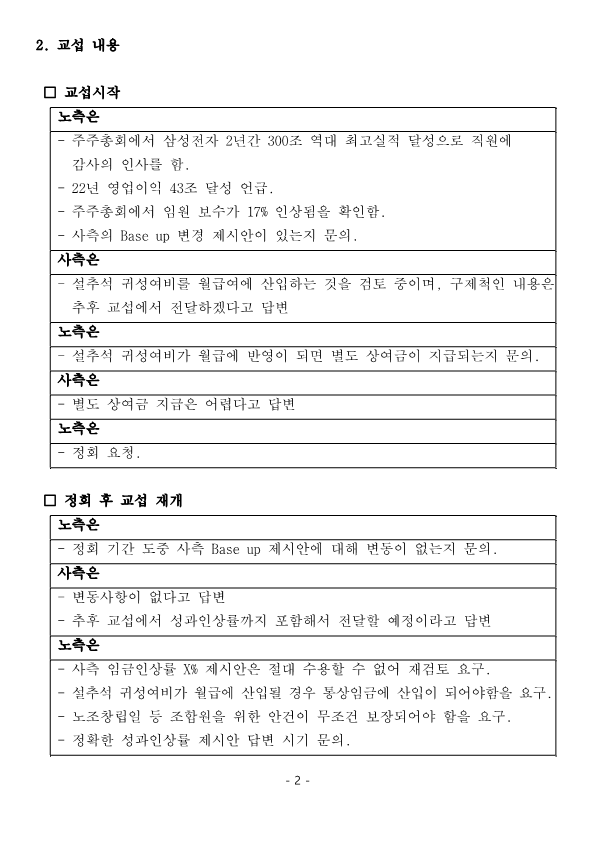 2. 교섭 내용
□ 교섭시작
노측은
- 주주총회에서 삼성전자 2년간 300조 역대 최고실적 달성으로 직원에
감사의 인사를 함.
- 22년 영업이익 43조 달성 언급.
- 주주총회에서 임원 보수가 17% 인상됨을 확인함.
- 사측의 Base up 변경 제시안이 있는지 문의.
사측은
- 설추석 귀성여비를 월급여에 산입하는 것을 검토 중이며, 구제척인 내용은
추후 교섭에서 전달하겠다고 답변
노측은
- 설추석 귀성여비가 월급에 반영이 되면 별도 상여금이 지급되는지 문의.
사측은
- 별도 상여금 지급은 어렵다고 답변
노측은
- 정회 요청.
□ 정회 후 교섭 재개
노측은
- 정회 기간 도중 사측 Base up 제시안에 대해 변동이 없는지 문의.
사측은
- 변동사항이 없다고 답변
- 추후 교섭에서 성과인상률까지 포함해서 전달할 예정이라고 답변
노측은
- 사측 임금인상률 X% 제시안은 절대 수용할 수 없어 재검토 요구.
- 설추석 귀성여비가 월급에 산입될 경우 통상임금에 산입이 되어야함을 요구.
- 노조창립일 등 조합원을 위한 안건이 무조건 보장되어야 함을 요구.
- 정확한 성과인상률 제시안 답변 시기 문의.
- 2 -